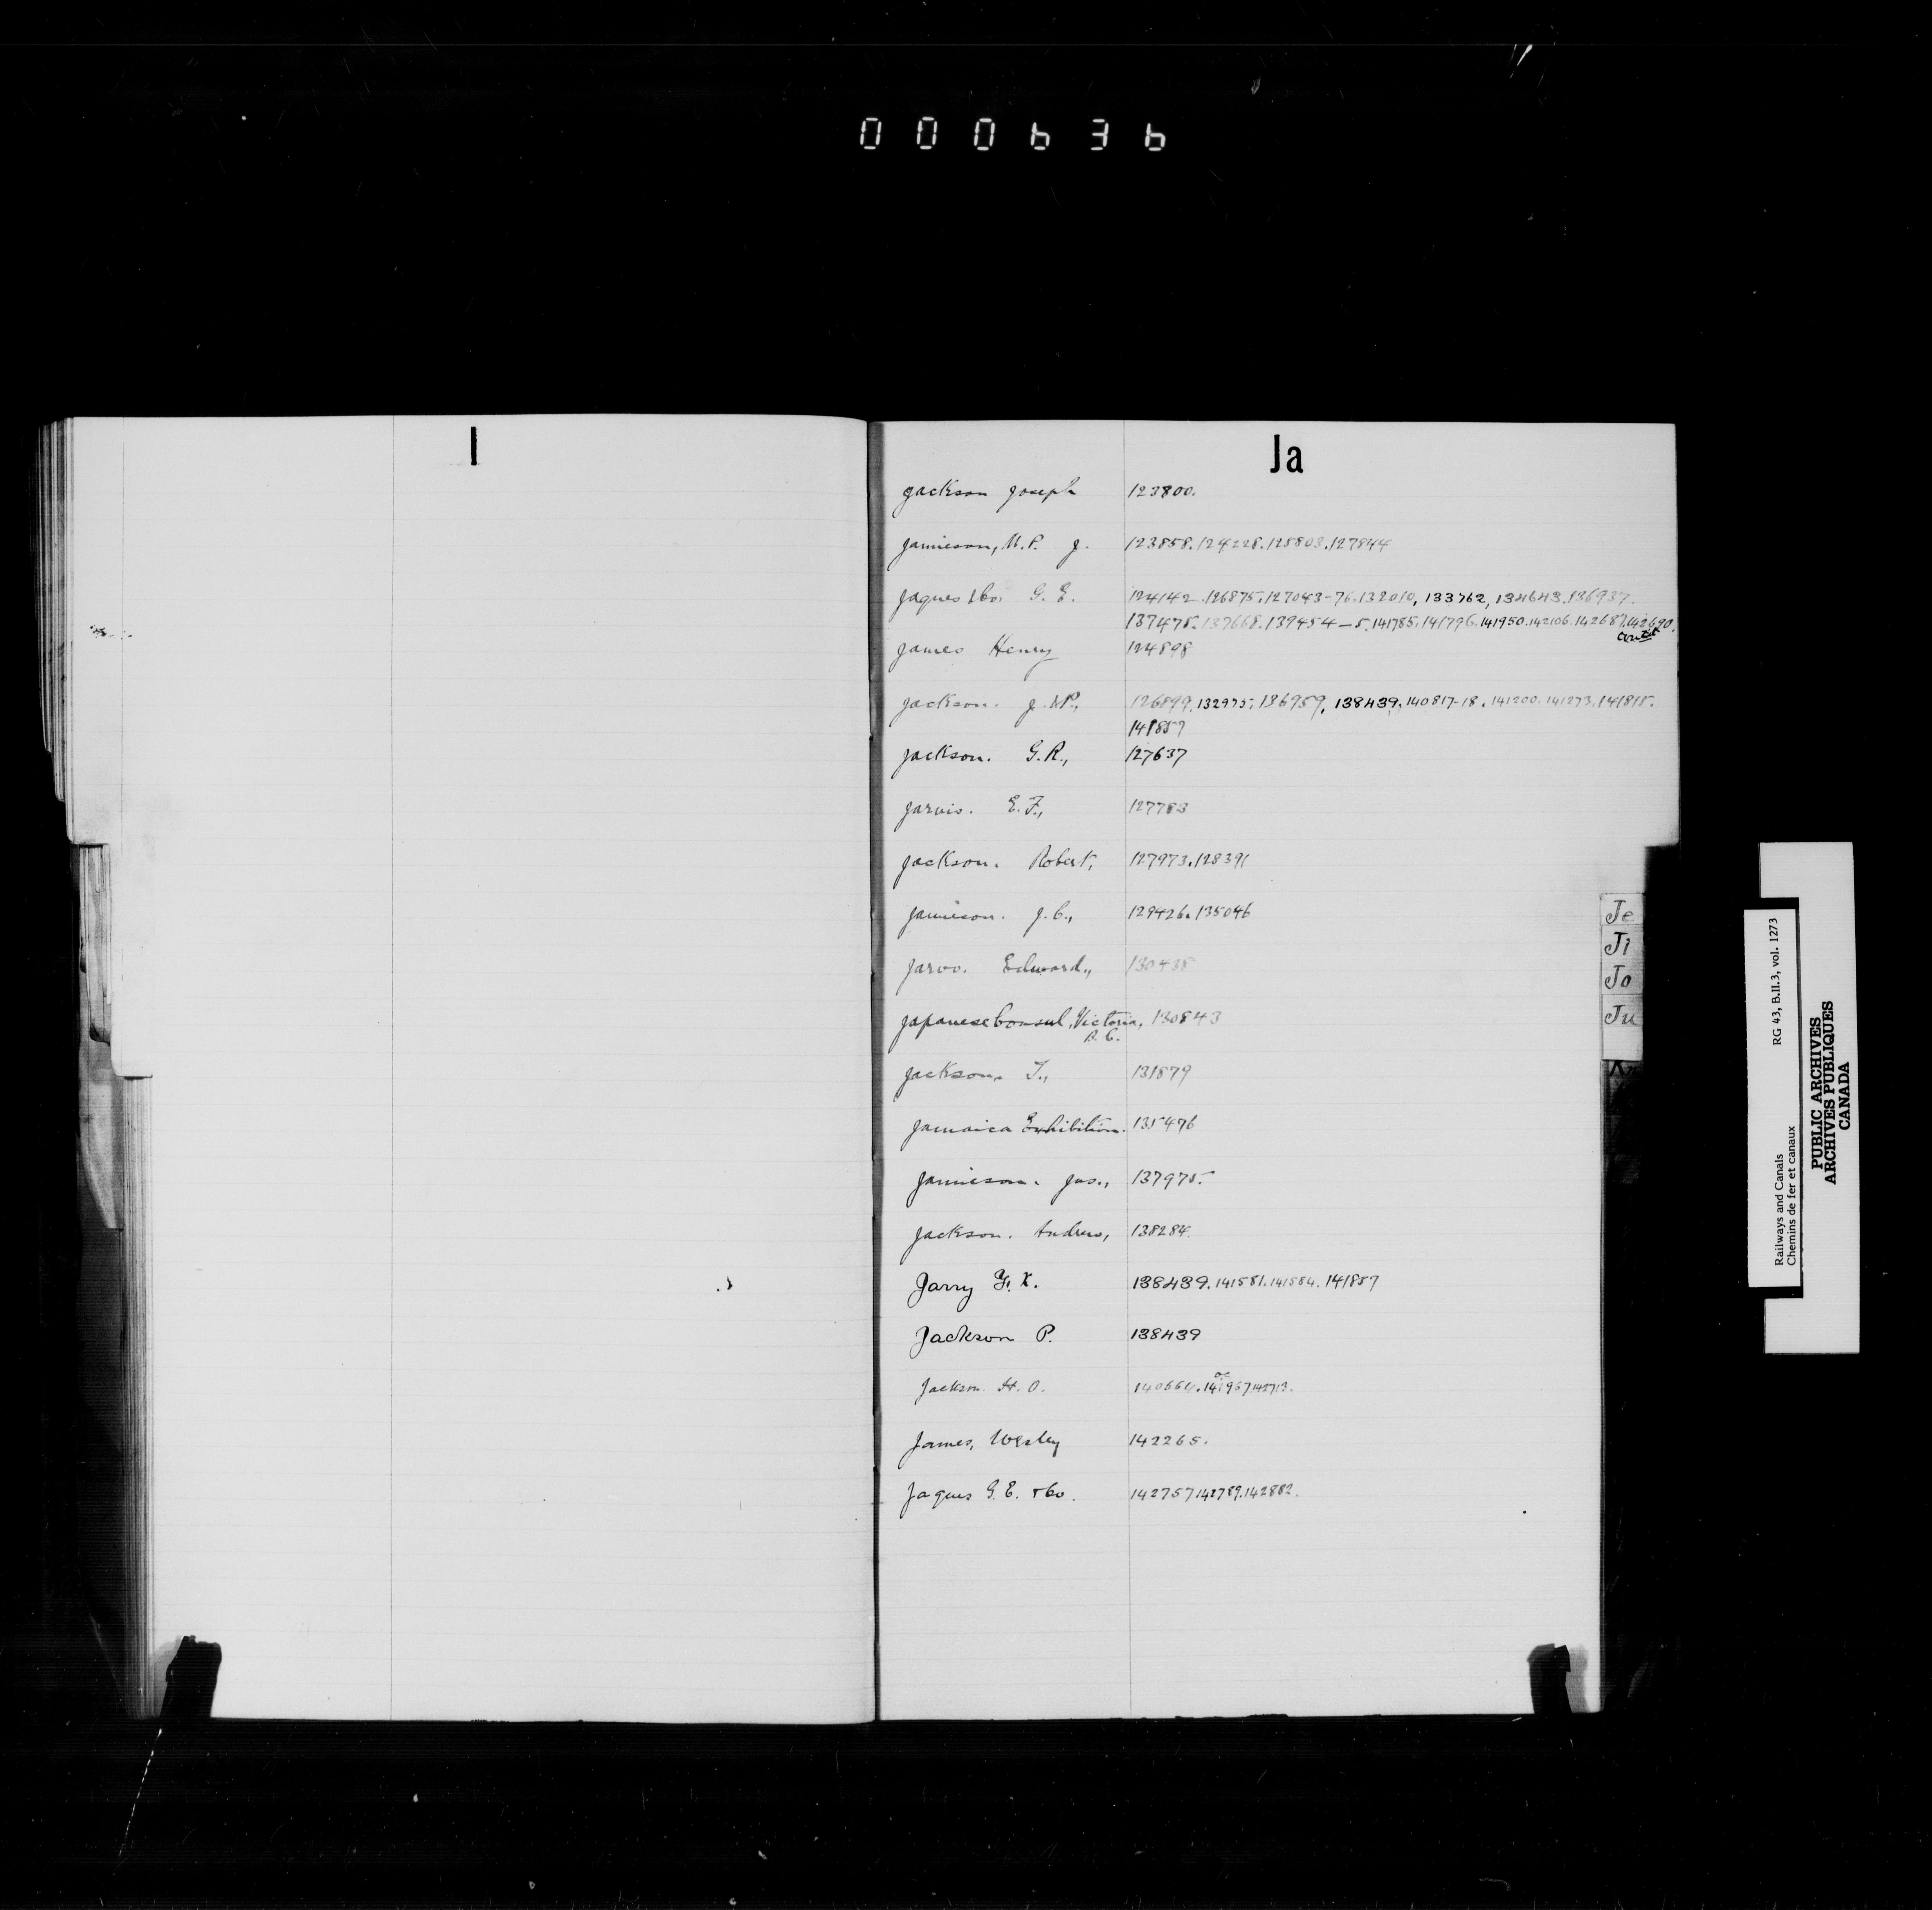 000636
I
Ja
Jackson Joseph 123800.
Jamieson, M.P. J. 123858.124228.125803.127844
Jaques & Co. G. E. 124142.126875.127043-76.132010, 133762, 134643.136937.
137475.137668.139454-5.141785.141796.141950.142106.142687.142690.
James Henry 124898
Jackson. J. W., 126899.132975.136959, 138439.140817-18.141200.141273.141815.
141857
Jackson. G.R., 127637
Jarvis. E.F., 127783
Jackson. Robert, 127973.128391
Jamieson. J.C., 129426.135046
Jarvo. Edward., 130435
Japanese Consul, Victoria, 130843
B.C.
Jackson. T., 131879
Jamaica Exhibition. 135476
Jamieson. Jas., 137975.
Jackson. Andrew, 138284.
Jarry F. X. 138439.141581.141584.141857
Jackson P. 138439
Jackson H. O. 140664.141967.142712.
James, Wesley 142265.
Jaques G. E. & Co. 142757.142789.142882.
Je
Ji
Jo
Ju
Kn
RG 43, B.II.3, vol. 1273
Railways and Canals
Chemins de fer et canaux
PUBLIC ARCHIVES
ARCHIVES PUBLIQUES
CANADA